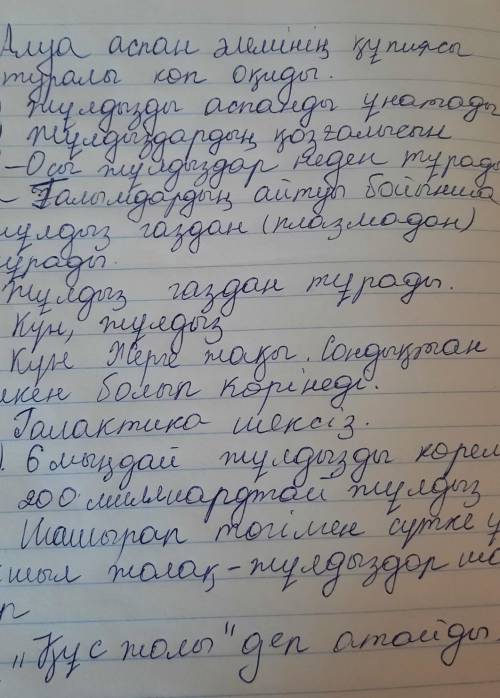 Алуа аспан әлемінің құпиясы
туралы көп оқиды.
) Жұлдызды аспанды ұнатады
) Жұлдыздардың қозғалысын
-Осы жұлдыздар неден тұрады
- Ғалымдардың айтуы бойынша
ұлдыз газдан (плазмадан)
ұрады.
Жұлдыз газдан тұрады.
Күн, жұлдыз
Күн Жерге жақы. Сондықтан
лкен болып көрінеді.
Галактика шексіз.
). 6 мыңдай жұлдызды көрем
200 миллиардтай жұлдыз
Шашырап төгілген сүтке ұ
шыл жолақ - жұлдыздар шо
р
„Құс жолы" деп атайды.